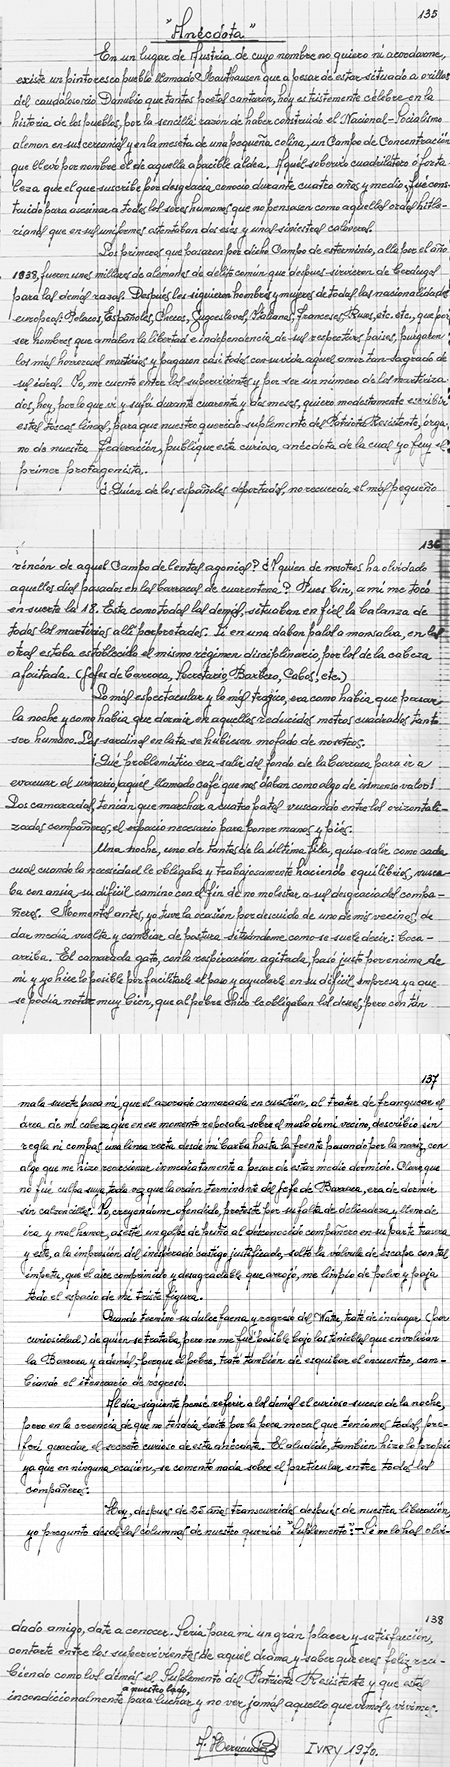 135
"Anécdota"
En un lugar de Austria de cuyo nombre no quiero ni acordarme,
existe un pintoresco pueblo llamado Mauthausen que a pesar de estar situado a orillas
del caudaloso rio Danubio que tantos poetas cantaron, hoy es tristemente célebre en la
historia de los pueblos, por la sencilla razón de haber construido el Nacional-Socialismo
aleman en sus cercanias y en la meseta de una pequeña colina, un Campo de Concentración
que llevó por nombre el de aquella apacible aldea. Aquel soberbio cuadrilatero ó forta-
leza que el que suscribe por desgracia conocio durante cuatro años y medio, fué cons-
truido para asesinar a todos los seres humanos que no pensasen como aquellas ordas hitle-
rianas que en sus uniformes ostentaban dos eses y unas siniestras calaveras.
Los primeros que pasaron por dicho Campo de esterminio, alla por el año
1938, fueron unos millares de alemanes de delito comun que despues sirvieron de berdugos
para las demás razas. Después les siguieron hombres y mujeres de todas las nacionalidades
europeas: Polacos, Españoles, Checos, Yugoeslavos, Italianos, Franceses, Rusos, etc. etc., que por
ser hombres que amaban la libertad e independencia de sus respectivos paises, purgaron
los más horrorosos martirios y pagaron casi todos con su vida aquel amor tan sagrado de
sus ideas. Yo, me cuento entre los supervivientes y por ser un número de los martiriza-
dos, hoy, por lo que vi y sufrí durante cuarenta y dos meses, quiero modestamente escribir
estas toscas lineas, para que nuestro querido suplemento del Patriota Resistente, órga-
no de nuestra Federación, publique esta curiosa anécdota de la cual yo fuy el
primer protagonista.
¿Quien de los españoles deportados, no recuerda el más pequeño
136
rincón de aquel Campo de lentas agonias? ¿Y quien de nosotros ha olvidado
aquellos dias pasados en las barracas de cuarentena? Pues bien, a mi me tocó
en suerte la 18. Esta como todas las demás, situaban en fiel la balanza de
todos los martirios alli perpretados. Si en una daban palos a mansalva, en las
otras estaba establecido el mismo régimen disciplinario, por los de la cabeza
afeitada. (Gefes de barraca, Secretario, Barbero, Cabos, etc.)
Lo más espectacular y lo más trágico, era como habia que pasar
la noche y como habia que dormir en aquellos reducidos metros cuadrados tanto
ser humano. Las sardinas en lata se hubiesen mofado de nosotros.
¡Qué problemático era salir del fondo de la barraca para ir a
evacuar al urinario, aquel llamado café que nos daban como algo de inmenso valor!
Los camaradas, tenian que marchar a cuatro patas vuscando entre los orizontali-
zados compañeros, el espacio necesario para poner manos y piés.
Una noche, uno de tantos de la última fila, quiso salir como cada
cual cuando la necesidad le obligaba y trabajosamente haciendo equilibrios, vusca-
ba con ansia su dificil camino con el fin de no molestar a sus desgraciados compa-
ñeros. Momentos antes, yo tuve la ocasión por descuido de uno de mis vecinos, de
dar media vuelta y cambiar de postura situándome como se suele decir: boca-
arriba. El camarada gato, con la respiración agitada, pasó justo por encima de
mi y yo hice lo posible por facilitarle el paso y ayudarle en su dificil empresa ya que
se podia notar muy bién, que al pobre chico le obligaban los deseos, pero con tán
137
mala suerte para mi, que el azorado camarada en cuestión, al tratar de franquear el
área de mi cabeza que en ese momento reposaba sobre el muslo de mi vecino, describió sin
regla ni compas una linea recta desde mi barba hasta la frente pasando por la nariz, con
algo que me hizo reaccionar inmediatamente a pesar de estar medio dormido. Claro, que
no fué culpa suya, toda vez que la orden terminante del Gefe de Barraca, era de dormir
sin calzoncillos. Yo, creyendome ofendido, protesté por su falta de delicadeza y lleno de
ira y mal humor, asesté un golpe de puño al desconocido compañero en su parte trasera
y este, a la impresión del inesperado castigo justificado, soltó la valvula de escape con tal
ímpetu, que el aire comprimido y desagradable que arrojó, me limpio de polvo y paja
todo el espacio de mi triste figura.
Cuando terminó su dulce faena y regresó del Water, traté de indagar (por
curiosidad) de quien se trataba, pero no me fué posible bajo las tinieblas que envolvian
la Barraca y además, porque el pobre, trató también de esquibar el encuentro, cam-
biando el itinerario de regreso.
Al dia siguiente pensé referir a los demás el curioso suceso de la noche,
pero en la creencia de que no tendria éxito por la poca moral que teniamos todos, pre-
feri guardar el secreto curioso de esta anécdota. El aludido, también hizo lo propio
ya que en ninguna ocasión, se comentó nada sobre el particular entre todos los
compañeros.
Hoy, despues de 25 años transcurridos después de nuestra liberación,
yo pregunto desde las columnas de nuestro querido "Suplemento": - Si no lo has olvi-
138
dado amigo, date a conocer. Seria para mi un grán placer y satisfacción,
contarte entre los supervivientes de aquel drama y saber que eres feliz reci-
biendo como los demás el Suplemento del Patriota Resistente y que estás
a nuestro lado,
incondicionalmente para luchar y no ver jamás aquello que vimos y vivimos.
A. Hernández IVRY 1970.